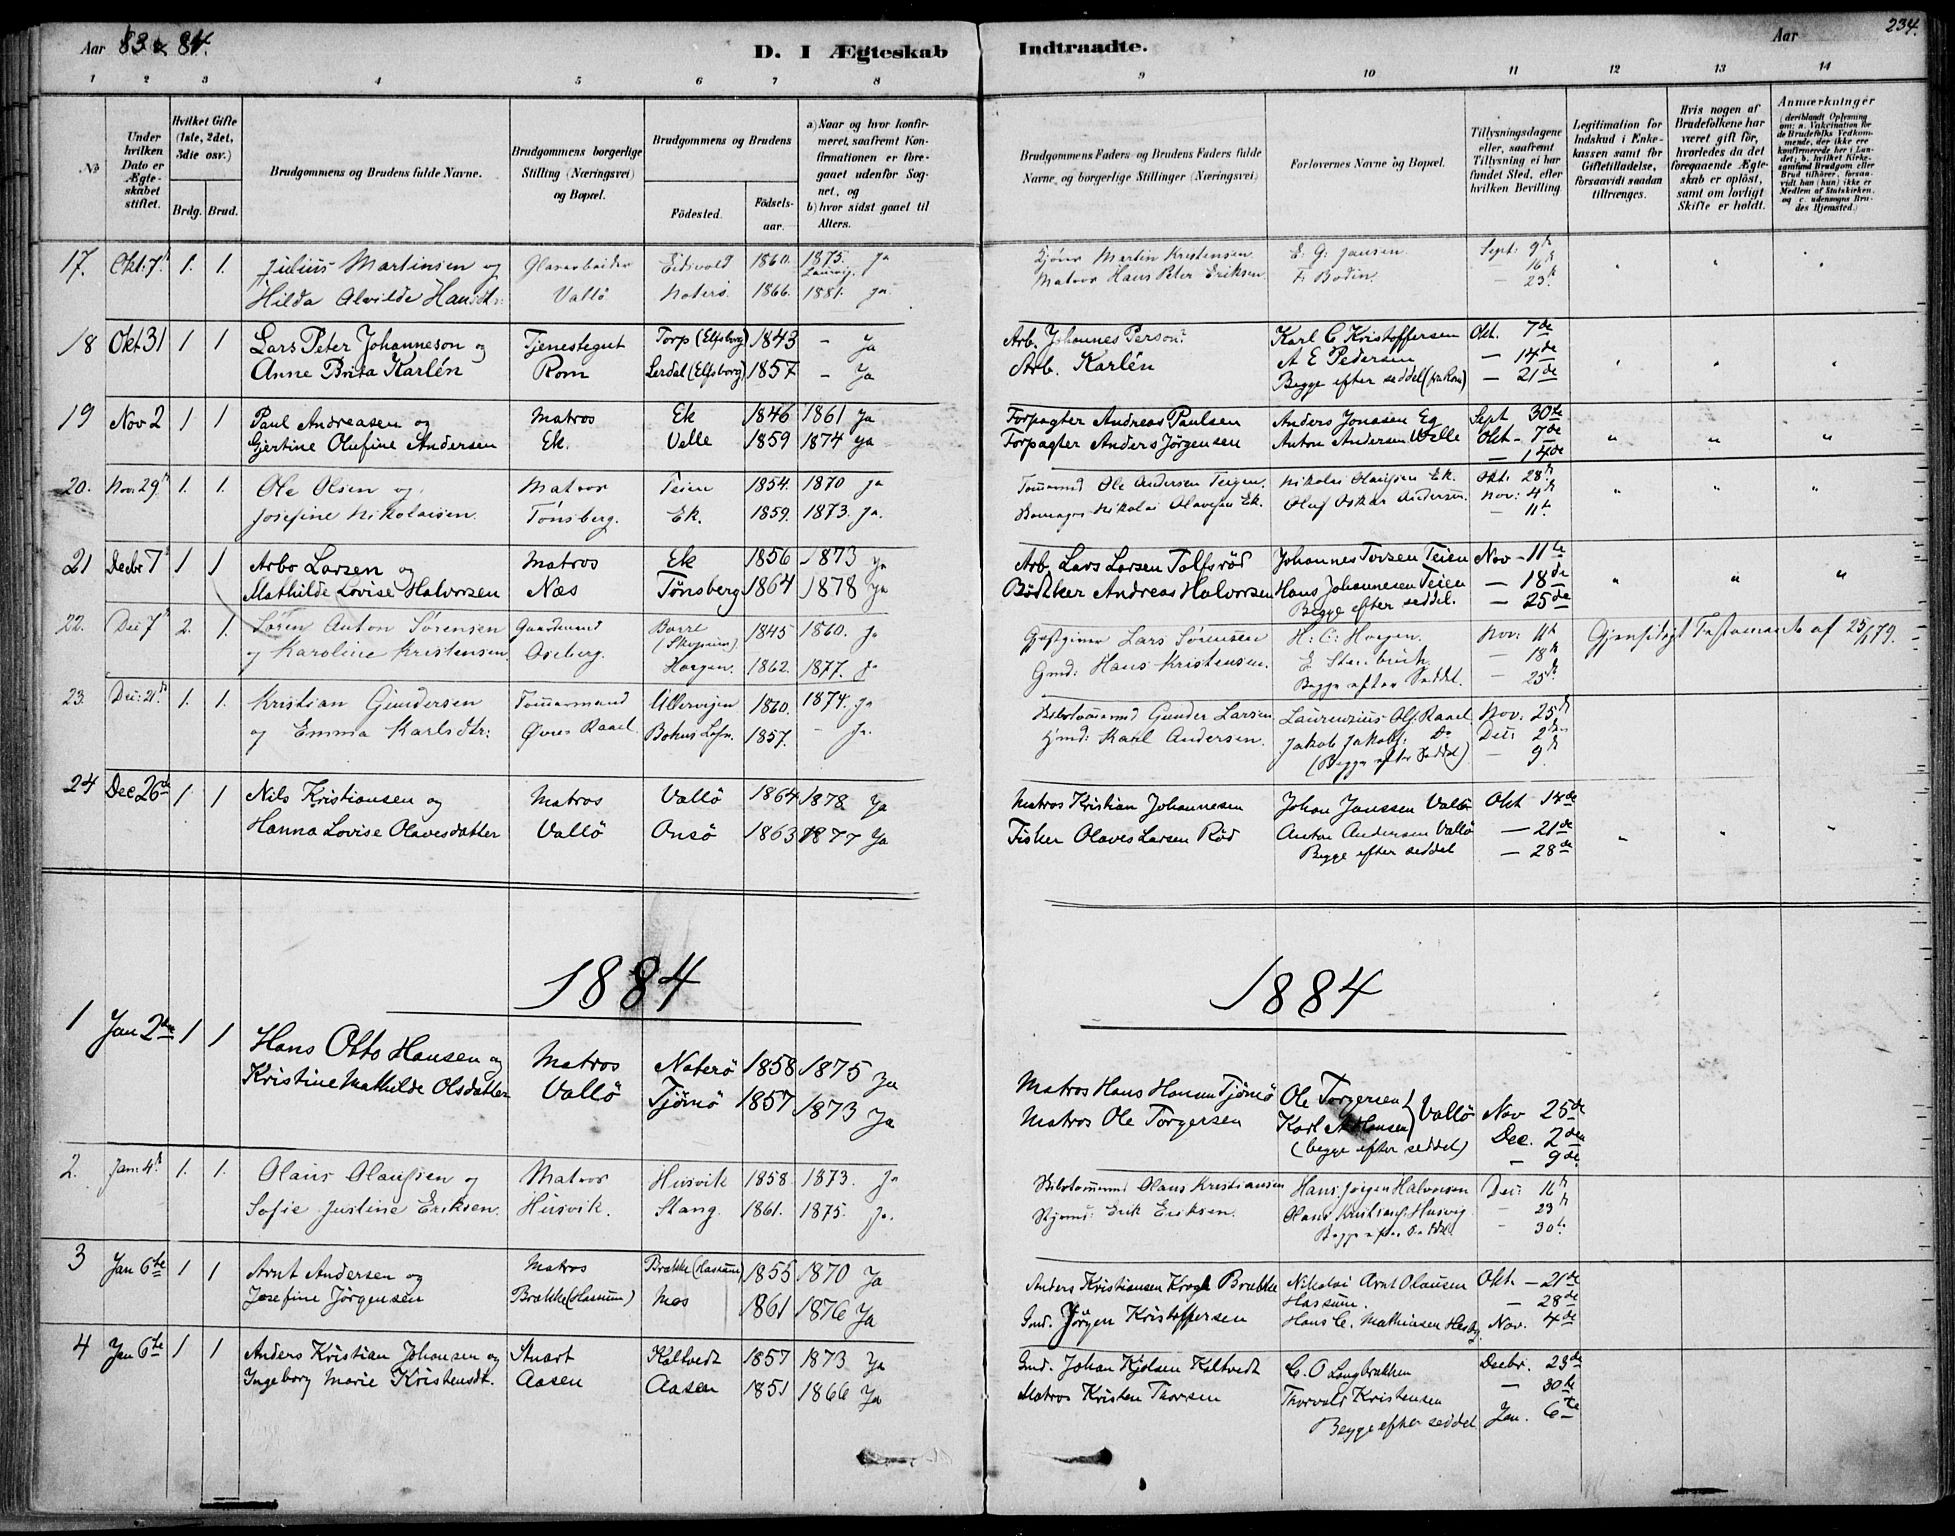 Aar 83 & 84.
D. I Ægteskab Indtraadte.
Aar
234.
1 2 3 4 5 6 7 8 9 10 11 12 13 14
No
Under hvilken Dato er Ægteskabet stiftet.
Hvilket Gifte (1ste, 2det, 3die osv.)
Brdg. Brud.
Brudgommens og Brudens fulde Navne.
Brudgommens borgerlige Stilling (Næringsvei) og Bopæl.
Brudgommens og Brudens
Födested.
Födselsaar.
a) Naar og hvor konfirmeret, saafremt Konfirmationen er foregaaet udenfor Sognet, og
b) hvor sidst gaaet til Alters.
Brudgommens Faders og Brudens Faders fulde Navne og borgerlige Stillinger (Næringsvei)
Forlovernes Navne og Bopæl.
Tillysningsdagene eller, saafremt Tillysning ei har fundet Sted, efter hvilken Bevilling.
Legitimation for Indskud i Enkekassen samt for Giftetilladelse, forsaavidt saadan tiltrænges.
Hvis nogen af Brudefolkene har været gift för, hvorledes da det foregaaende Ægteskab er oplöst, samt om lovligt Skifte er holdt.
Anmærkninger (deriblandt Oplysning om: a. Vakcination for de Brudefolks Vedkommende, der ikke ere konfirmerede her i Landet; b. hvilket Kirkesamfund Brudgom eller Brud tilhörer, forsaavidt han (hun) ikke er Medlem af Statskirken, og c. udensogns Brudes Hjemsted.)
17. Okt: 7 1. 1. Julius Martinsen og Glasarbeider Eidsvold 1860. 1875. ja Martin Kristensen E. G. Jansen. Sept: 9de
Laurvig. — 16
Hilda Alvilde Hansdtr: Vallö Noterö. 1866. 1881. ja. Matros Hans Peter Eriksen F. Bodin. — 23
18 Okt 31 1 1 Lars Peter Johanneson og Tjenestegut Torp (Elfsborg) 1843 – Ja Arb. Johannes Person. Karl C Kristoffersen Okt. 7de
Anne Brita Karlén Rom Lerdal (Elfsborg) 1857 – Ja Arb. Karlén A E Pedersen — 14de
Begge efter seddel (fra Rom) — 21de
19 Nov 2 1 1 Paul Andreasen og Matros Ek 1846 1861 Ja Forpagter Andreas Paulsen Anders Jonssen Eg Sept 30te
Gjertine Olufine Andersen Ek. Velle 1859 1874 ja Forpagter Anders Jörgensen Anton Andersen Velle Okt – 7de
— 14de
20. Nov. 29 1. 1. Ole Olsen og Matros Teien 1854. 1870 ja Tömmermd Ole Andersen Teigen. Nikolai Olaussen Ek. Okt. 28
Josefine Nikolaisen. Tönsberg. Ek. 1859. 1873. ja. Nikolai Olavesen Ek. Oluf Oskar Andersen. Nov: 4
— 11
21 Decbr 7 1 1 Arbo Larsen og Matros Ek 1856 1873 ja Arb Lars Larsen Tolfsröd Johannes Torsen Teien Nov – 11te
Mathilde Lovise Halvorsen Næs Tönsberg 1864 1878 Ja Bödtker Andreas Halvorsen Hans Johannesen Teien — 18de
Begge efter seddel. — 25de
22. Dec 7 2. 1. Sören Anton Sörensen Gaardmand Borre 1845 1860. ja Gjestgiver Lars Sörensen H. C. Horgen. Nov: 11te Gjensidigt Testamente af 25/1 79.
— 18
og Karoline Kristensen. Oseberg. Horgen. 1862. 1877. ja Gmd: Hans Kristensen. Begge efter Seddel. — 25de
23. Dec: 21 1. 1. Kristian Gundersen Tömmermand 1860. 1874. ja Gunder Larsen Laurenzius Olf. Raael Nov: 25
og Emma Karlsdtr: Övre Raael. Bohus Lehn. 1857. – Ja. Karl Andersen. Jakob Jakobs. Do Dec: 2den
(Begge efter Seddel) — 9
24 Dec 26de 1 1 Nils Kristiansen og Matros Vallö 1864 1878 Ja Matros Kristian Johannesen Johan Janssen Vallö Okt 14de
Hanna Lovise Olavesdatter Vallö Onsö 1863 1877 Ja Fisker Olaves Larsen Röd Anton Andersen Vallö — 21de
Begge efter seddel — 28de
1884 1884
1 Jan 2den 1 1 Hans Otto Hansen og Matros Noterö 1858 1875 Ja Matros Hans Hansen Tjömö Ole Torgersen Vallö Nov 25de
Kristine Mathilde Olsdatter Vallö Tjömö 1857 1873 Ja Matros Ole Torgersen Karl A Hansen Dec. 2den
(begge efter seddel) – 9de
2. Jan: 4 1. 1. Olaus Olaussen og Matros Husvik 1858. 1873. ja Olaus Kristiansen Hans Jörgen Halvorsen Dec: 16
Sofie Justine Eriksen. Husvik. Stang. 1861. 1875. ja. Erik Eriksen. Olaus Kristians. Husvig – 23
Begge efter Seddel. – 30
3 Jan 6te 1 1 Arnt Andersen og Matros Brække (Hassum) 1855 1870 Ja Anders Kristiansen Krogh Brække Nikolai Arnt Olausen Okt. – 21de
Hassum. — 28de
Josefine Jörgensen Brække (Hassum) Mos 1861 1876 Ja Gmd. Jörgen Kristoffersen Hans C. Mathiasen Hasby. Nov. 4de
4 Jan 6te 1 1 Anders Kristian Johansen og Stuart Kaltvedt 1857 1873 Ja Gmd. Johan Kjölsen Kaltvedt C. O Langbrækken Decbr. 23de
— 30te
Ingeborg Marie Kristensdt. Aasen Aasen 1851 1866 Ja Matros Kristen Thorsen Thorvald Kristensen
Begge efter seddel Jan. 6te